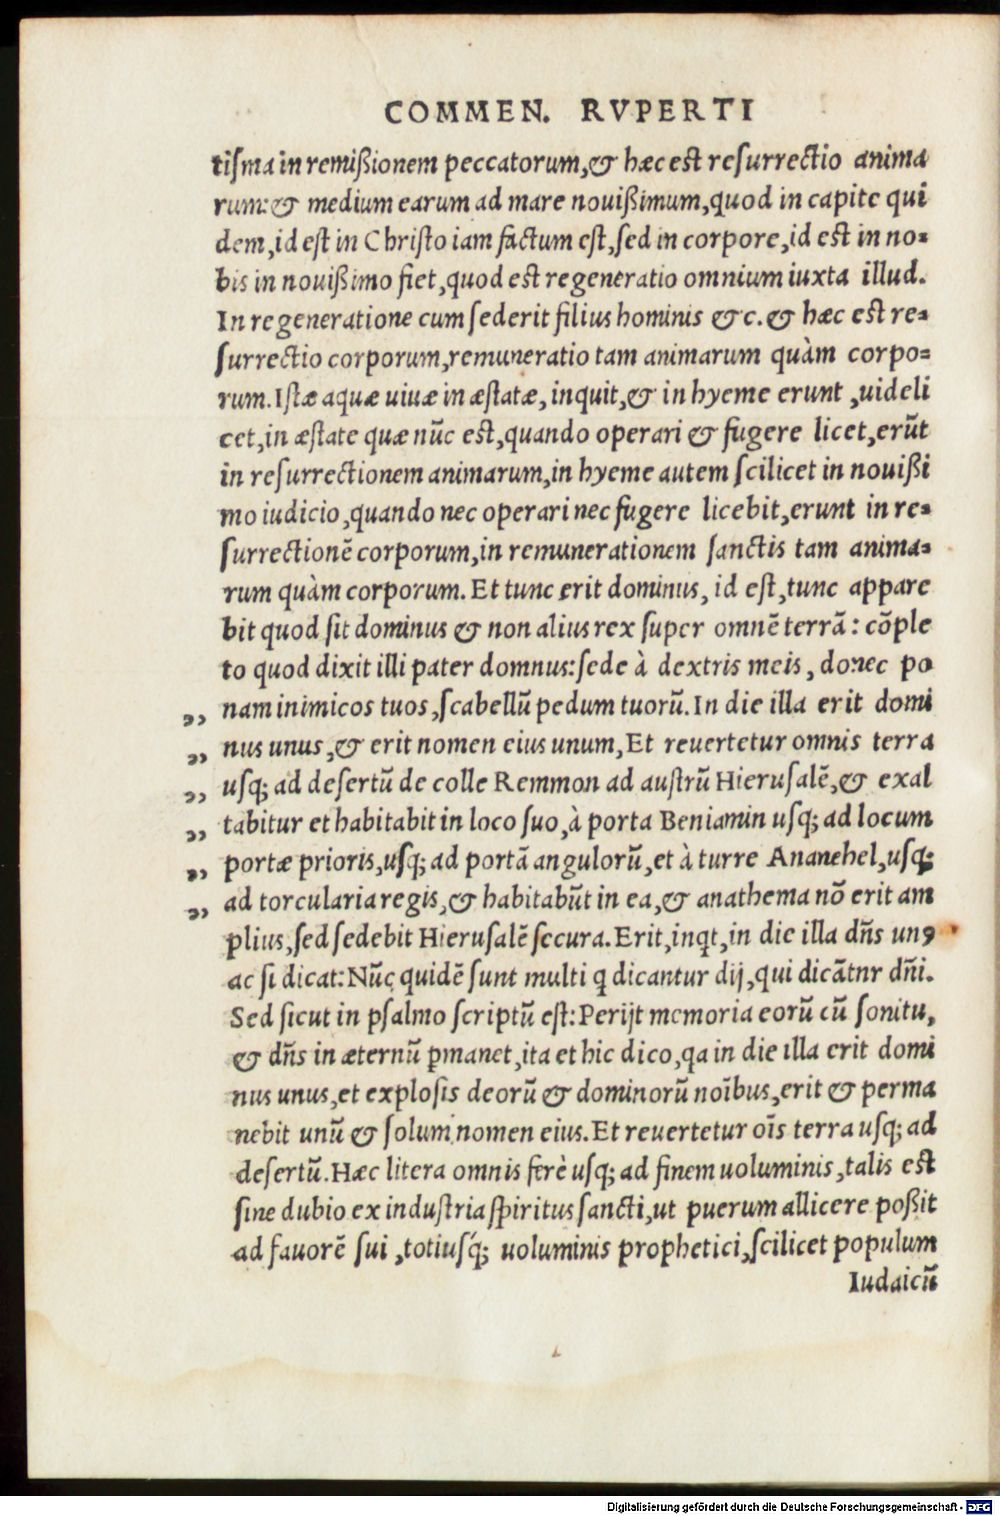 COMMEN. RVPERTI
tiſma in remißionem peccatorum,& hæc eſt reſurrectio anima
rum:& medium earum ad mare nouißimum,quod in capite qui
dem,id eſt in Chriſto iam factum eſt,ſed in corpore,id eſt in no⸗
bis in nouißimo fiet,quod eſt regeneratio omnium iuxta illud.
In regeneratione cum ſederit filius hominis &c.& hæc eſt re⸗
ſurrectio corporum,remuneratio tam animarum quàm corpo⸗
rum.Iſtæ aquæ uiuæ in æſtatæ,inquit,& in hyeme erunt ,uideli
cet,in æſtate quæ nũc eſt,quando operari & fugere licet,erũt
in reſurrectionem animarum,in hyeme autem ſcilicet in nouißi
mo iudicio,quando nec operari nec fugere licebit,erunt in re⸗
ſurrectionẽ corporum,in remunerationem ſanctis tam anima⸗
rum quàm corporum. Et tunc erit dominus, id eſt,tunc appare
bit quod ſit dominus & non alius rex ſuper omnẽ terrã: cõple
to quod dixit illi pater domnus:ſede à dextris meis, donec po
„ nam inimicos tuos,ſcabellũ pedum tuorũ.In die illa erit domi
„ nus unus,& erit nomen eius unum,Et reuertetur omnis terra
„ uſq; ad deſertũ de colle Remmon ad auſtrũ Hieruſalẽ,& exal
„ tabitur et habitabit in loco ſuo,à porta Beniamin uſq; ad locum
„ portæ prioris,uſq; ad portã angulorũ,et à turre Ananehel,uſq;
„ ad torcularia regis,& habitabũt in ea,& anathema nõ erit am
plius,ſed ſedebit Hieruſalẽ ſecura.Erit,inqͭt,in die illa dñs unꝰ
ac ſi dicat:Nũc quidẽ ſunt multi ꝗ dicantur dij,qui dicãtnr dñi.
Sed ſicut in pſalmo ſcriptũ eſt:Perijt memoria eorũ cũ ſonitu,
& dñs in æternũ ꝑmanet,ita et hic dico,qa in die illa erit domi
nus unus,et exploſis deorũ & dominorũ noĩbus,erit & perma
nebit unũ & ſolum nomen eius.Et reuertetur oĩs terra uſq; ad
deſertũ.Hæc litera omnis ferè uſq; ad finem uoluminis,talis eſt
ſine dubio ex induſtria ſpiritus ſancti,ut puerum allicere poßit
ad fauorẽ ſui ,totiuſq́; uoluminis prophetici,ſcilicet populum
Iudaicũ
Digitalisierung gefördert durch die Deutsche Forschungsgemeinschaft - DFG